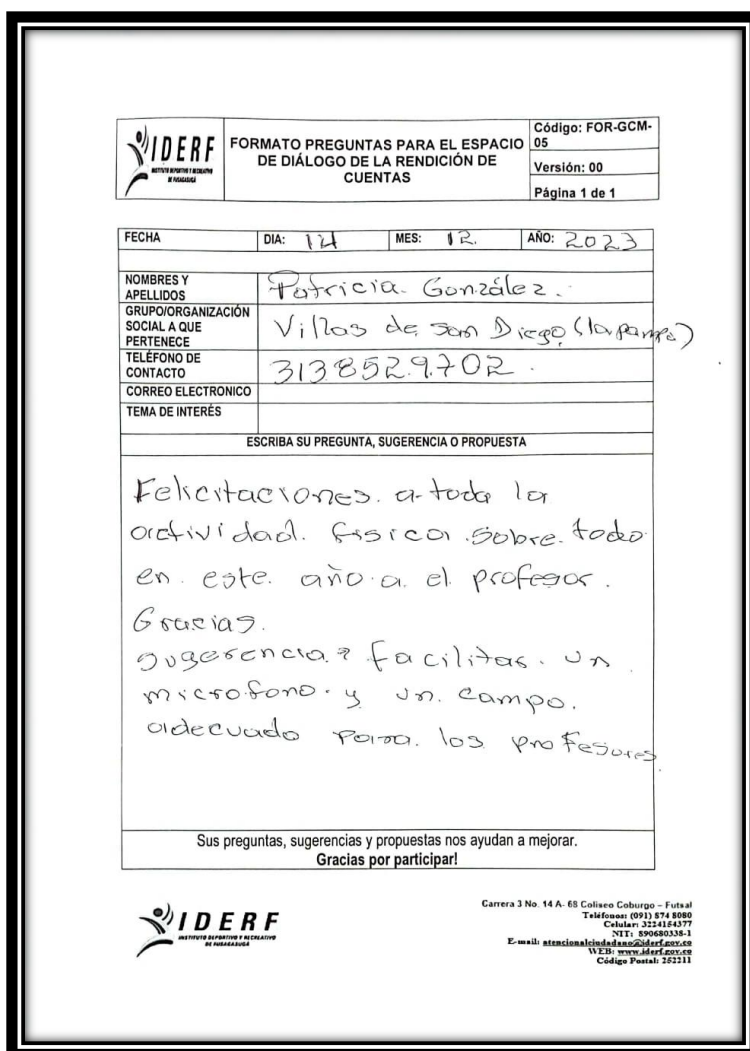 IDERF
INSTITUTO DEPORTIVO Y RECREATIVO
DE FUSAGASUGÁ
FORMATO PREGUNTAS PARA EL ESPACIO
DE DIÁLOGO DE LA RENDICIÓN DE
CUENTAS
Código: FOR-GCM-
05
Versión: 00
Página 1 de 1
FECHA DIA: 14 MES: 12. AÑO: 2023
NOMBRES Y
APELLIDOS
Patricia. González.
GRUPO/ORGANIZACIÓN
SOCIAL A QUE
PERTENECE
Villas de San Diego (la pampa)
TELÉFONO DE
CONTACTO
3138529702.
CORREO ELECTRONICO
TEMA DE INTERÉS
ESCRIBA SU PREGUNTA, SUGERENCIA O PROPUESTA
Felicitaciones. a toda la
actividad. fisica. sobre. todo
en. este. año. a. el. profesor.
Gracias.
sugerencia? facilitar. un
microfono. y un. campo.
adecuado para. los profesores.
Sus preguntas, sugerencias y propuestas nos ayudan a mejorar.
Gracias por participar!
IDERF
INSTITUTO DEPORTIVO Y RECREATIVO
DE FUSAGASUGÁ
Carrera 3 No. 14 A- 68 Coliseo Coburgo – Futsal
Teléfonos: (091) 874 8080
Celular: 3224154377
NIT: 890680338-1
E-mail: atencionalciudadano@iderf.gov.co
WEB: www.iderf.gov.co
Código Postal: 252211